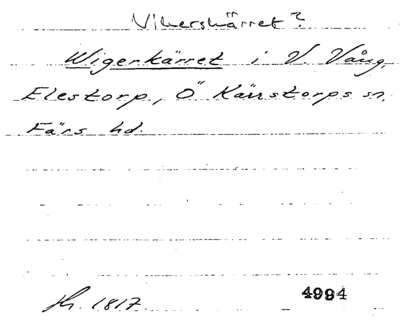 Vikerskärret?
Wigerkärret i V. Vång,
Elestorp, Ö Kärrstorps sn.
Färs hd.
Hr. 1817.
4994